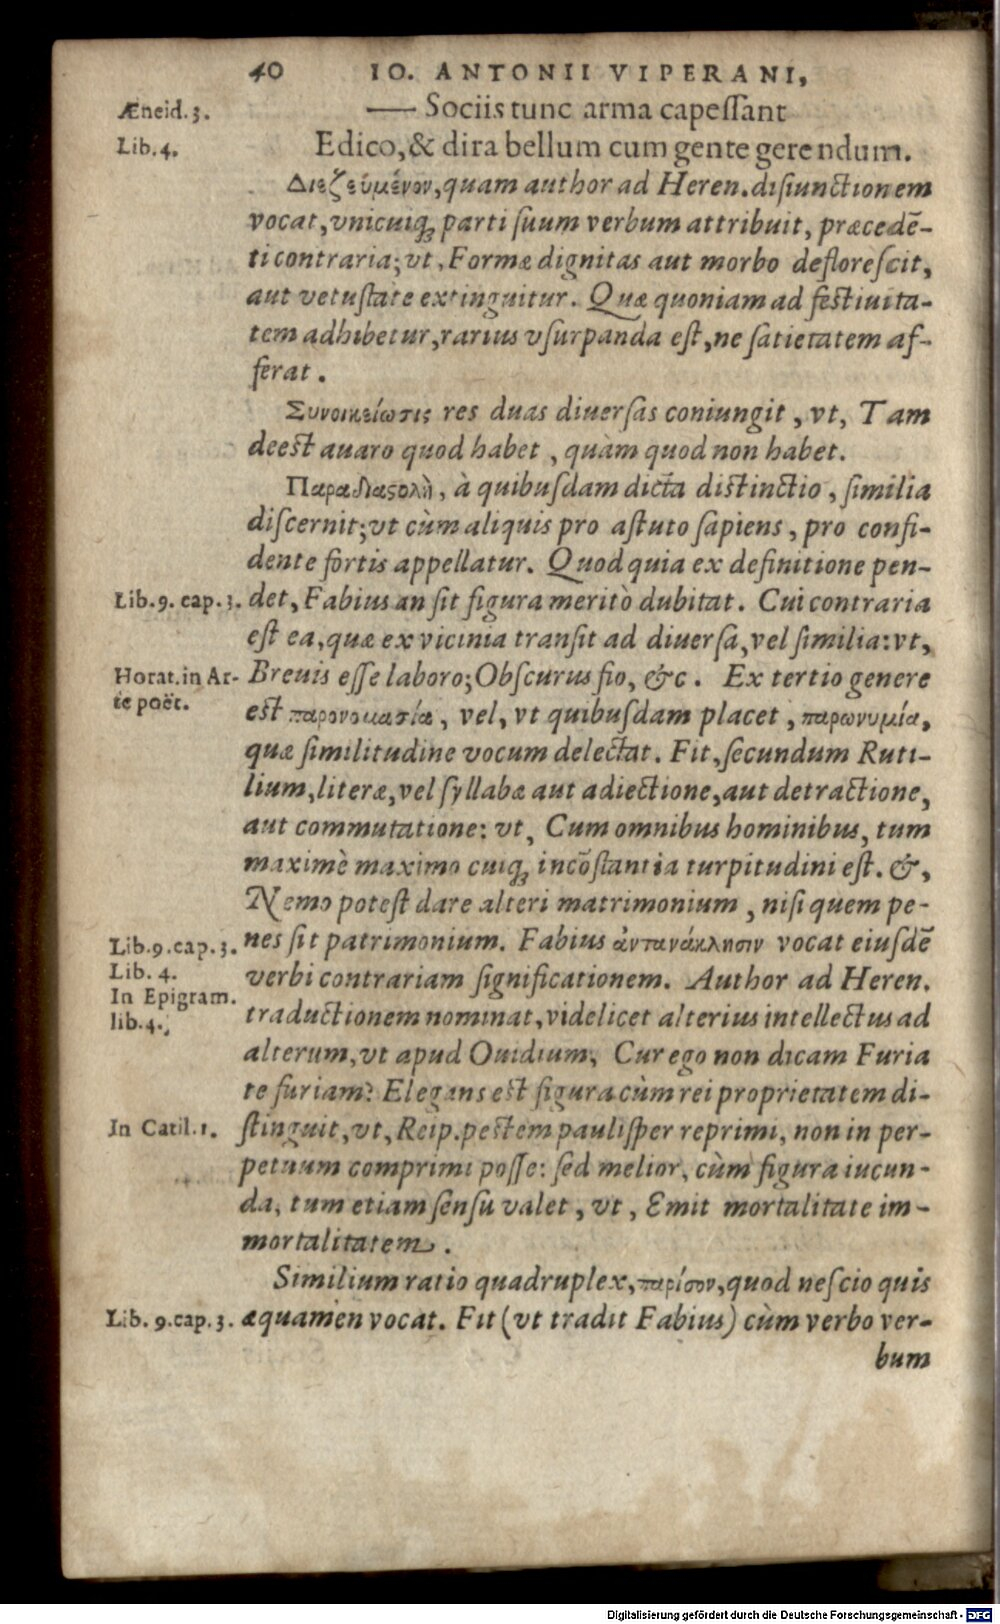 40 IO. ANTONII VIPERANI,
Æneid. 3.
— Sociis tunc arma capeſſant
Lib. 4.
Edico, & dira bellum cum gente gerendum.
Διεζευμένον, quam author ad Heren. diſiunctionem
vocat, vnicuiq́; parti ſuum verbum attribuit, præcedē-
ti contraria; vt, Formæ dignitas aut morbo defloreſcit,
aut vetuſtate extinguitur. Quæ quoniam ad feſtiuita-
tem adhibetur, rarius vſurpanda eſt, ne ſatietatem af-
ferat.
Συνοικείωσις res duas diuerſas coniungit, vt, Tam
deeſt auaro quod habet, quàm quod non habet.
Παραδιαςολὴ, à quibuſdam dicta diſtinctio, ſimilia
diſcernit; vt cùm aliquis pro aſtuto ſapiens, pro confi-
dente fortis appellatur. Quod quia ex definitione pen-
Lib. 9. cap. 3.
det, Fabius an ſit figura meritò dubitat. Cui contraria
eſt ea, quæ ex vicinia tranſit ad diuerſa, vel ſimilia: vt,
Horat. in Ar-
te poët.
Breuis eſſe laboro; Obſcurus fio, &c. Ex tertio genere
eſt παρονομασία, vel, vt quibuſdam placet, παρωνυμία,
quæ ſimilitudine vocum delectat. Fit, ſecundum Ruti-
lium, literæ, vel ſyllabæ aut adiectione, aut detractione,
aut commutatione: vt, Cum omnibus hominibus, tum
maximè maximo cuiq́; incōſtantia turpitudini eſt. &,
Nemo poteſt dare alteri matrimonium, niſi quem pe-
Lib. 9. cap. 3.
nes ſit patrimonium. Fabius ἀντανάκλησιν vocat eiuſdē
Lib. 4.
verbi contrariam ſignificationem. Author ad Heren.
In Epigram.
lib. 4.
traductionem nominat, videlicet alterius intellectus ad
alterum, vt apud Ouidium, Cur ego non dicam Furia
te furiam? Elegans eſt figura cùm rei proprietatem di-
In Catil. 1.
ſtinguit, vt, Reip. peſtem pauliſper reprimi, non in per-
petuum comprimi poſſe: ſed melior, cùm figura iucun-
da, tum etiam ſenſu valet, vt, Emit mortalitate im-
mortalitatem.
Similium ratio quadruplex, παρίσον, quod neſcio quis
Lib. 9. cap. 3.
æquamen vocat. Fit (vt tradit Fabius) cùm verbo ver-
bum
Digitalisierung gefördert durch die Deutsche Forschungsgemeinschaft - DFG